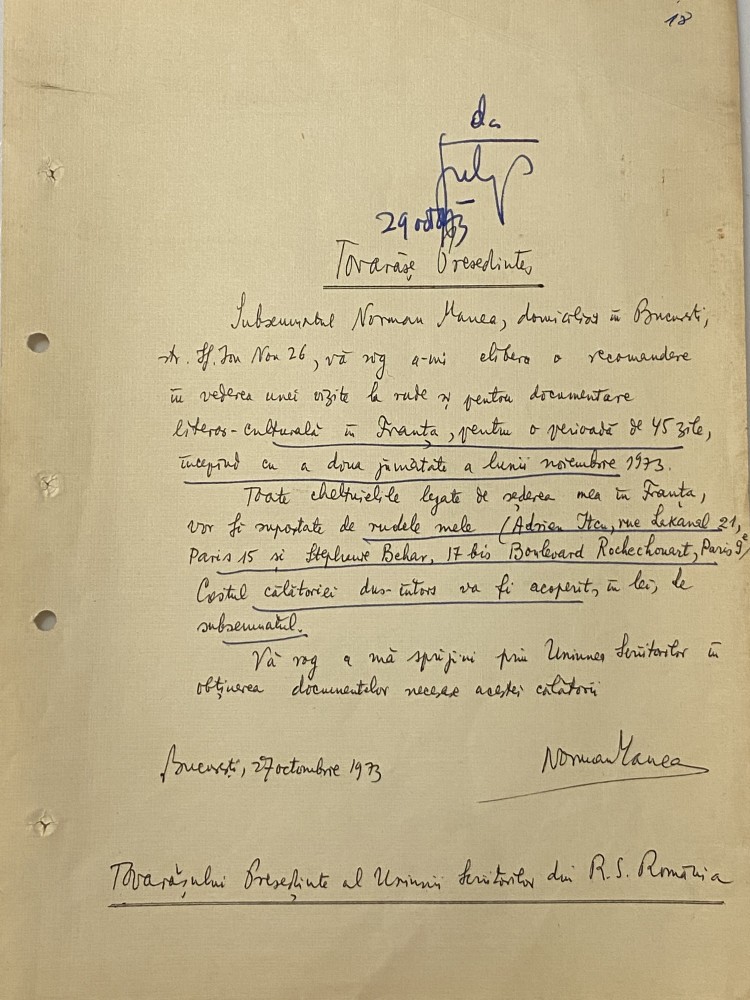 18
da
29 oct 73
Tovarăşe Preşedinte,
Subsemnatul Norman Manea, domiciliat în Bucureşti,
str. Sf. Ion Nou 26, vă rog a-mi elibera o recomandare
în vederea unei vizite la rude şi pentru documentare
literar-culturală în Franţa, pentru o perioadă de 45 zile,
începînd cu a doua jumătate a lunii noiembrie 1973.
Toate cheltuielile legate de şederea mea în Franţa,
vor fi suportate de rudele mele (Adrien, rue Lakanal 21,
Paris 15 şi Stephanie Behar, 17 bis Boulevard Rochechouart, Paris 9e)
Costul călătoriei dus-întors va fi acoperit, în lei, de
subsemnatul.
Vă rog a mă sprijini prin Uniunea Scriitorilor în
obţinerea documentelor necesare acestei călătorii
Bucureşti, 27 octombrie 1973
Norman Manea
Tovarăşului Preşedinte al Uniunii Scriitorilor din R.S. România